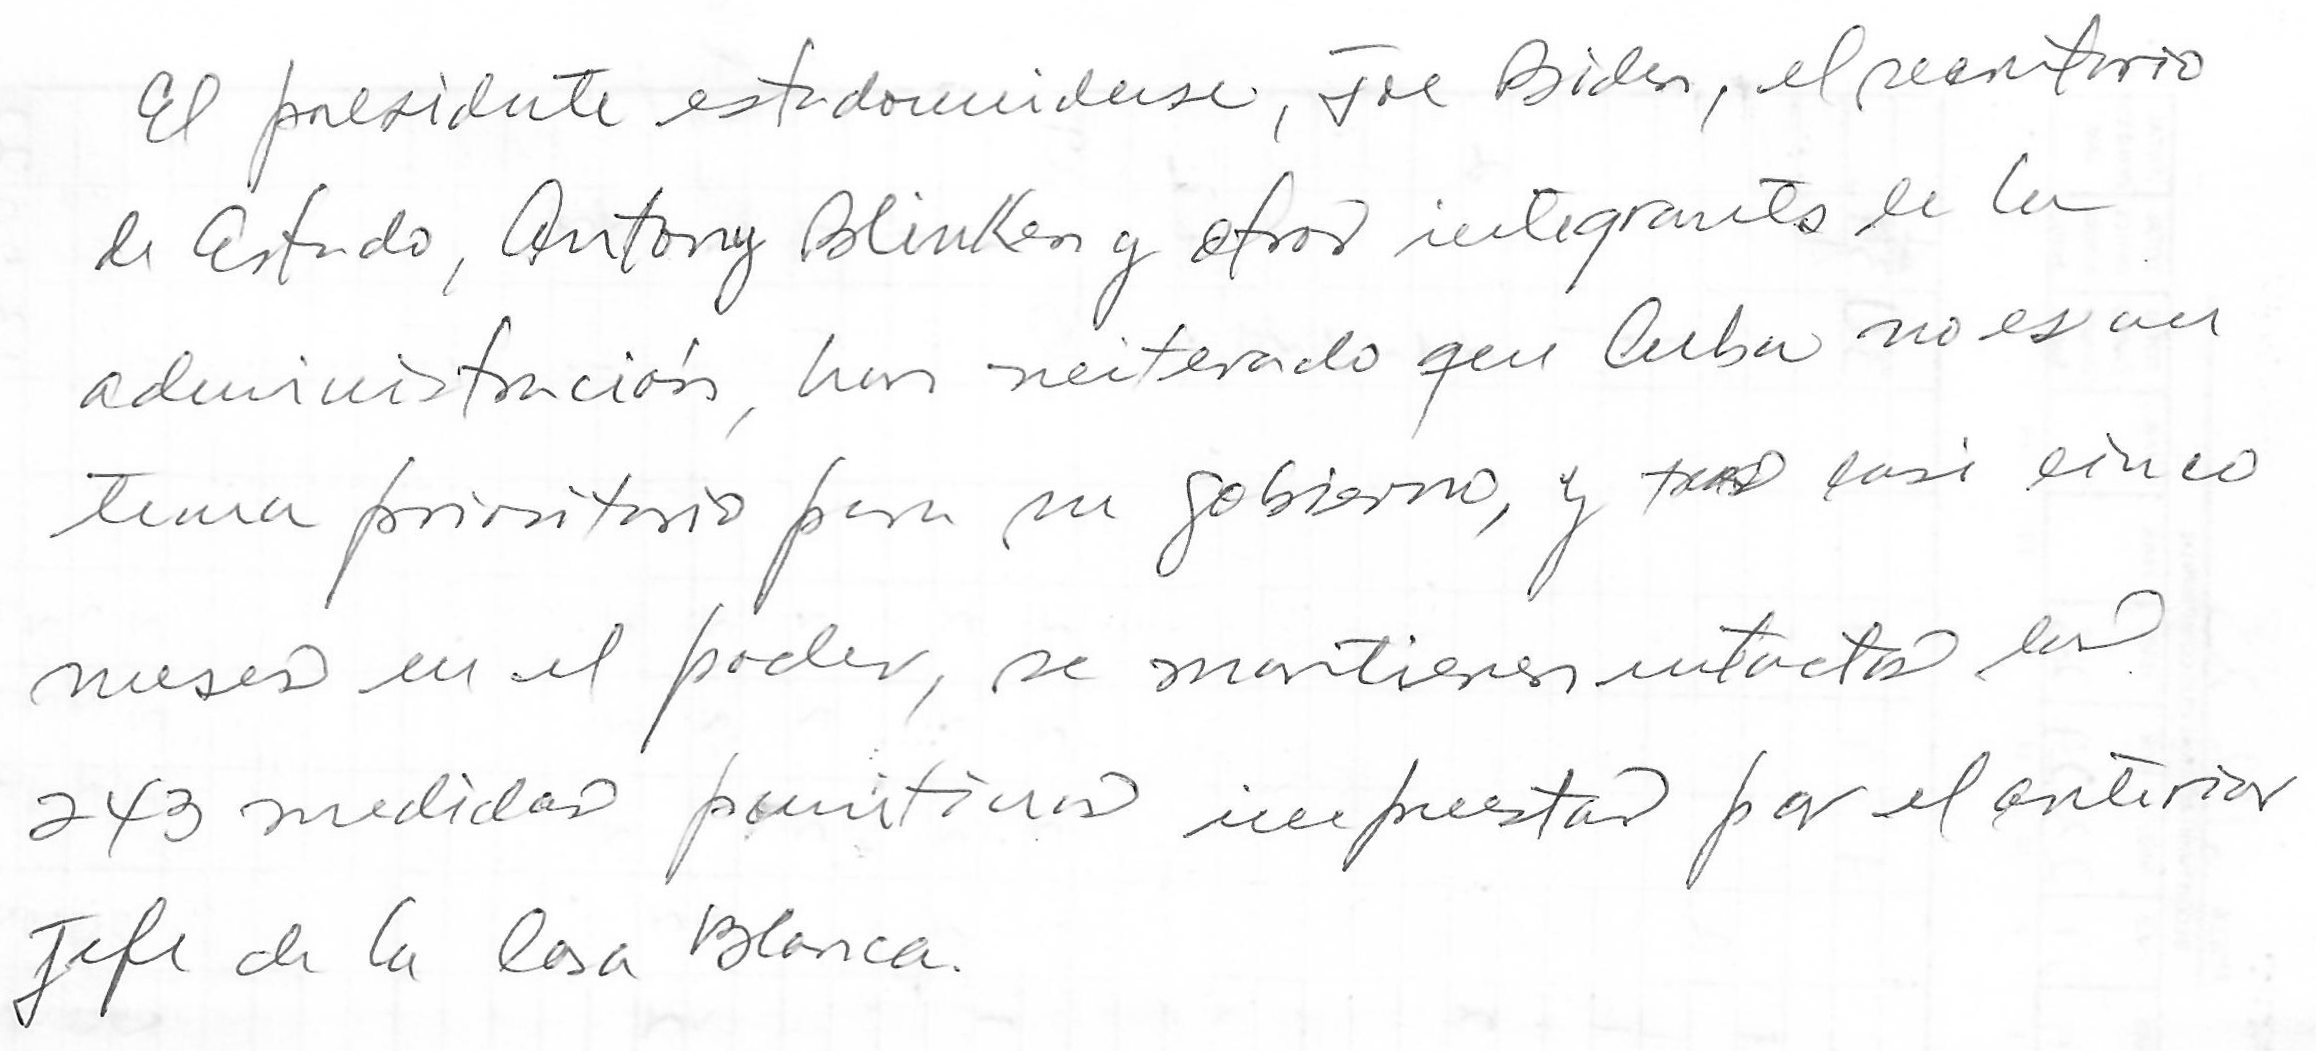 El presidente estadounidense, Joe Biden, el secretario
de Estado, Antony Blinken y otros integrantes de la
administración, han reiterado que Cuba no es un
tema prioritario para su gobierno, y tras casi cinco
meses en el poder, se mantienen intactas las
243 medidas punitivas impuestas por el anterior
Jefe de la Casa Blanca.